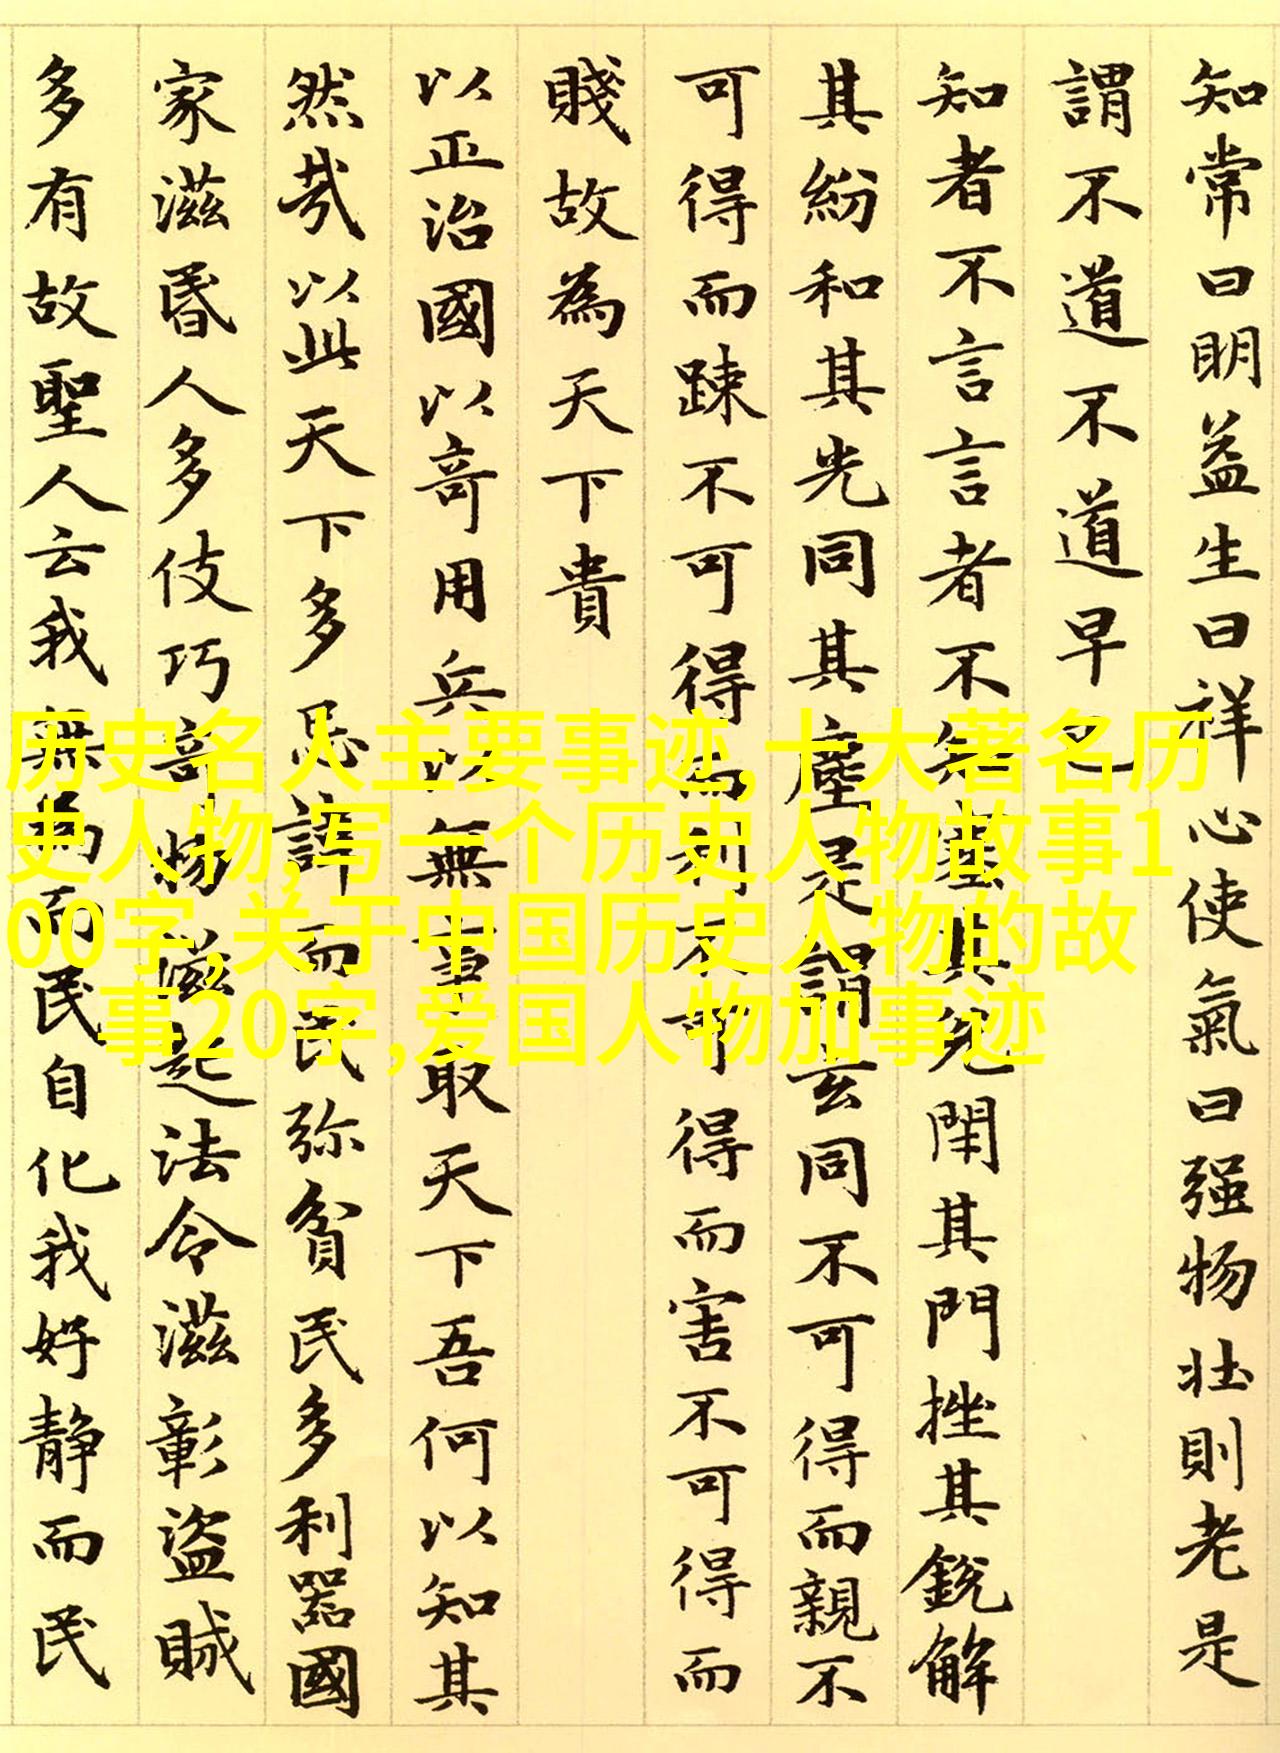 知常曰明益生曰祥心使氣曰强物壮則老是
謂不道不道早已
知者不言言者不知塞其兑閉其門挫其銳解
其紛和其光同其塵是謂玄同不可得而親不
可得而踈不可得而利不可得而害不可得而
賤故為天下貴
以正治國以竒用兵以無事取天下吾何以知其
然㢤以此天下多忌諱而民弥貧民多利器國
家滋昏人多伎巧竒物滋起法令滋彰盗賊
多有故聖人云我無為而民自化我好静而民
历史名人主要事迹,十大著名历
史人物,写一个历史人物故事1
00字,关于中国历史人物的故
事20字,爱国人物加事迹